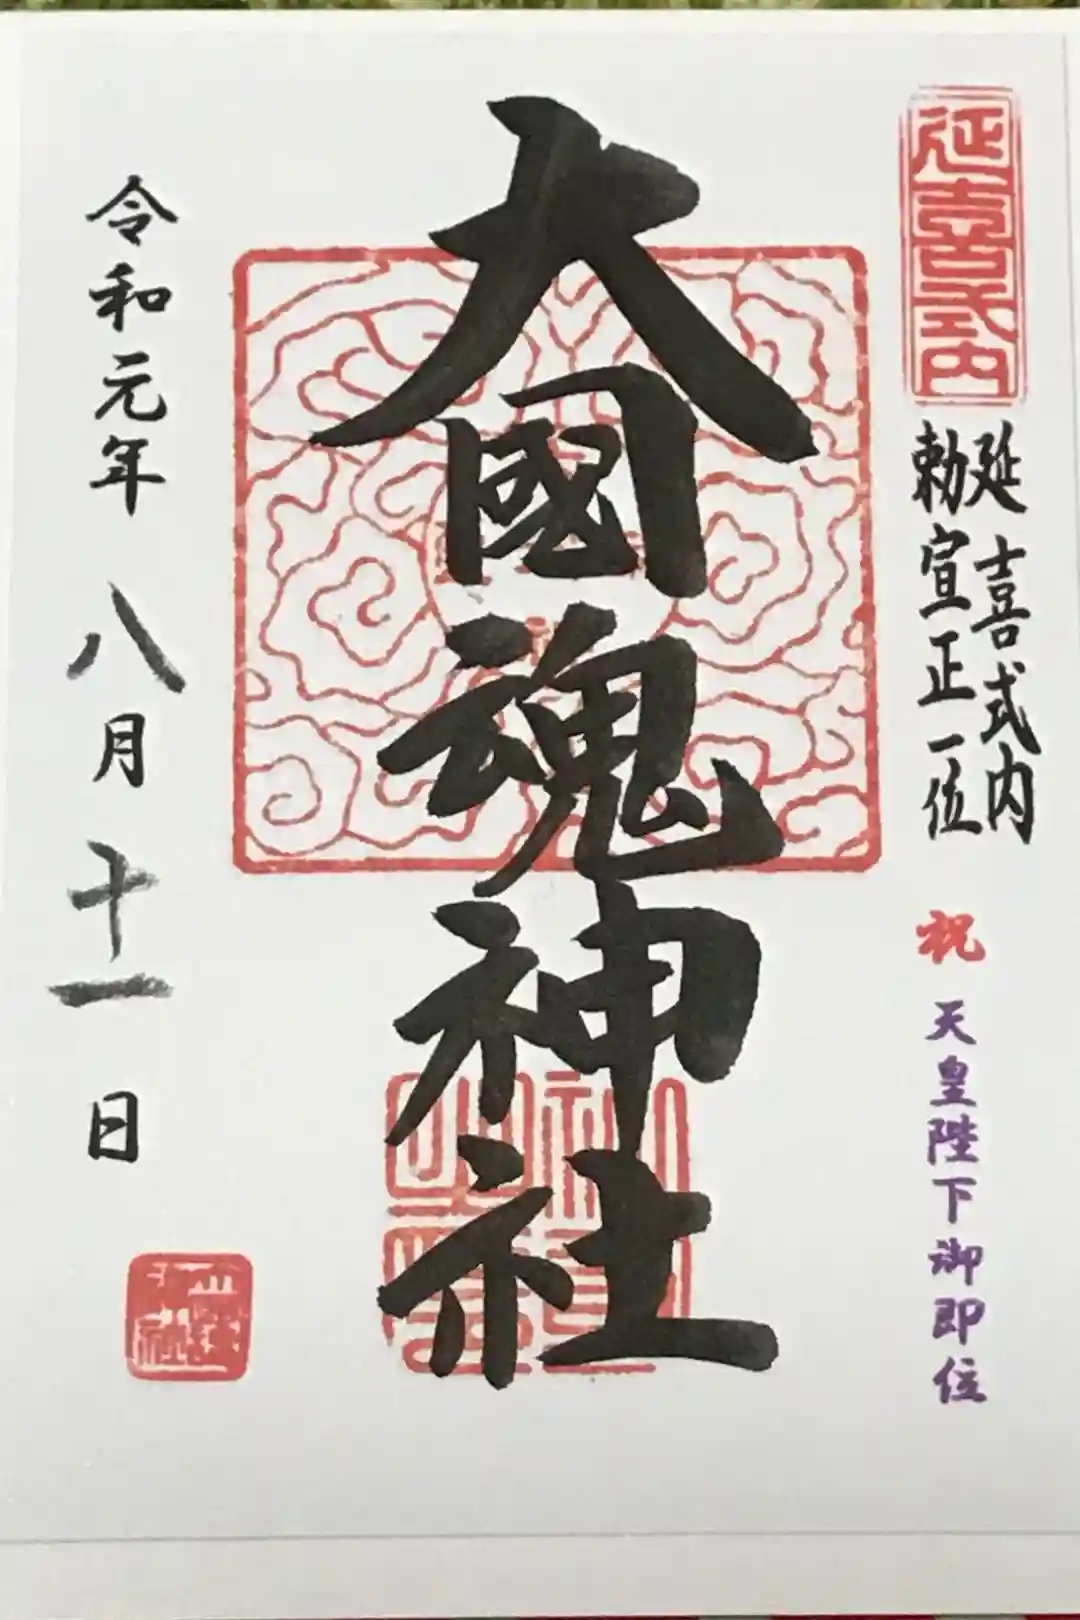 延喜式内
延喜式内
勅宣正一位
祝
天皇陛下御即位
大國魂神社
令和元年 八月 十一日